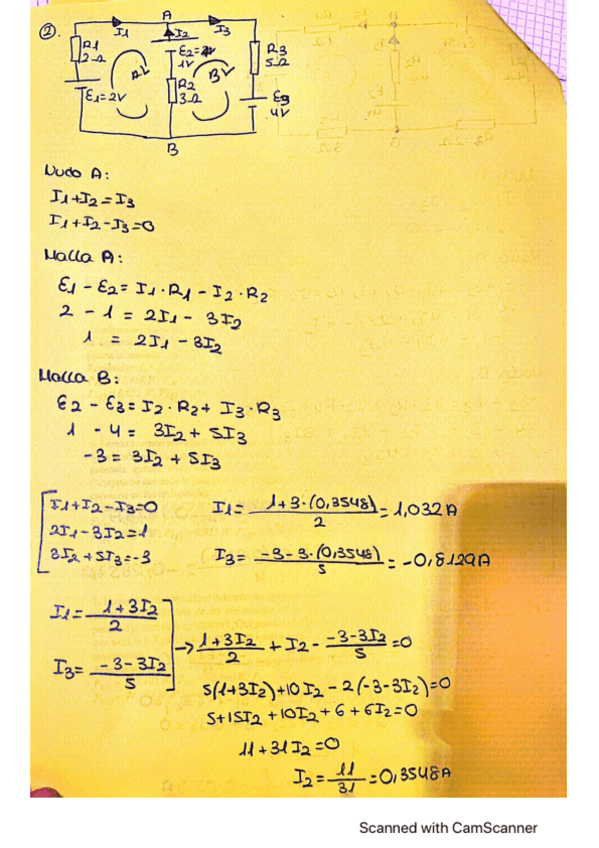 ②.
A
I1 I2 I3
R1
2Ω
ε1=2V
A
1V
R2
3Ω
B
R3
5Ω
4V
B
Nudo A:
I1+I2=I3
I1+I2-I3=0
Malla A:
ε1 - ε2= I1·R1 - I2·R2
2 - 1 = 2I1 - 3I2
1 = 2I1 - 3I2
Malla B:
ε2 - ε3= I2·R2+ I3·R3
1 - 4 = 3I2 + 5I3
-3= 3I2 + 5I3
I1+I2-I3=0
2I1-3I2=1
3I2+5I3=-3
I1= 1+3·(0,3548)/2 = 1,032A
I3= -3-3·(0,3548)/5 = -0,8129A
I1= 1+3I2/2
I3= -3-3I2/5
→ 1+3I2/2 + I2 - -3-3I2/5 =0
5(1+3I2)+10I2-2(-3-3I2)=0
5+15I2+10I2+6+6I2=0
11+31I2=0
I2= 11/31 =0,3548A
Scanned with CamScanner